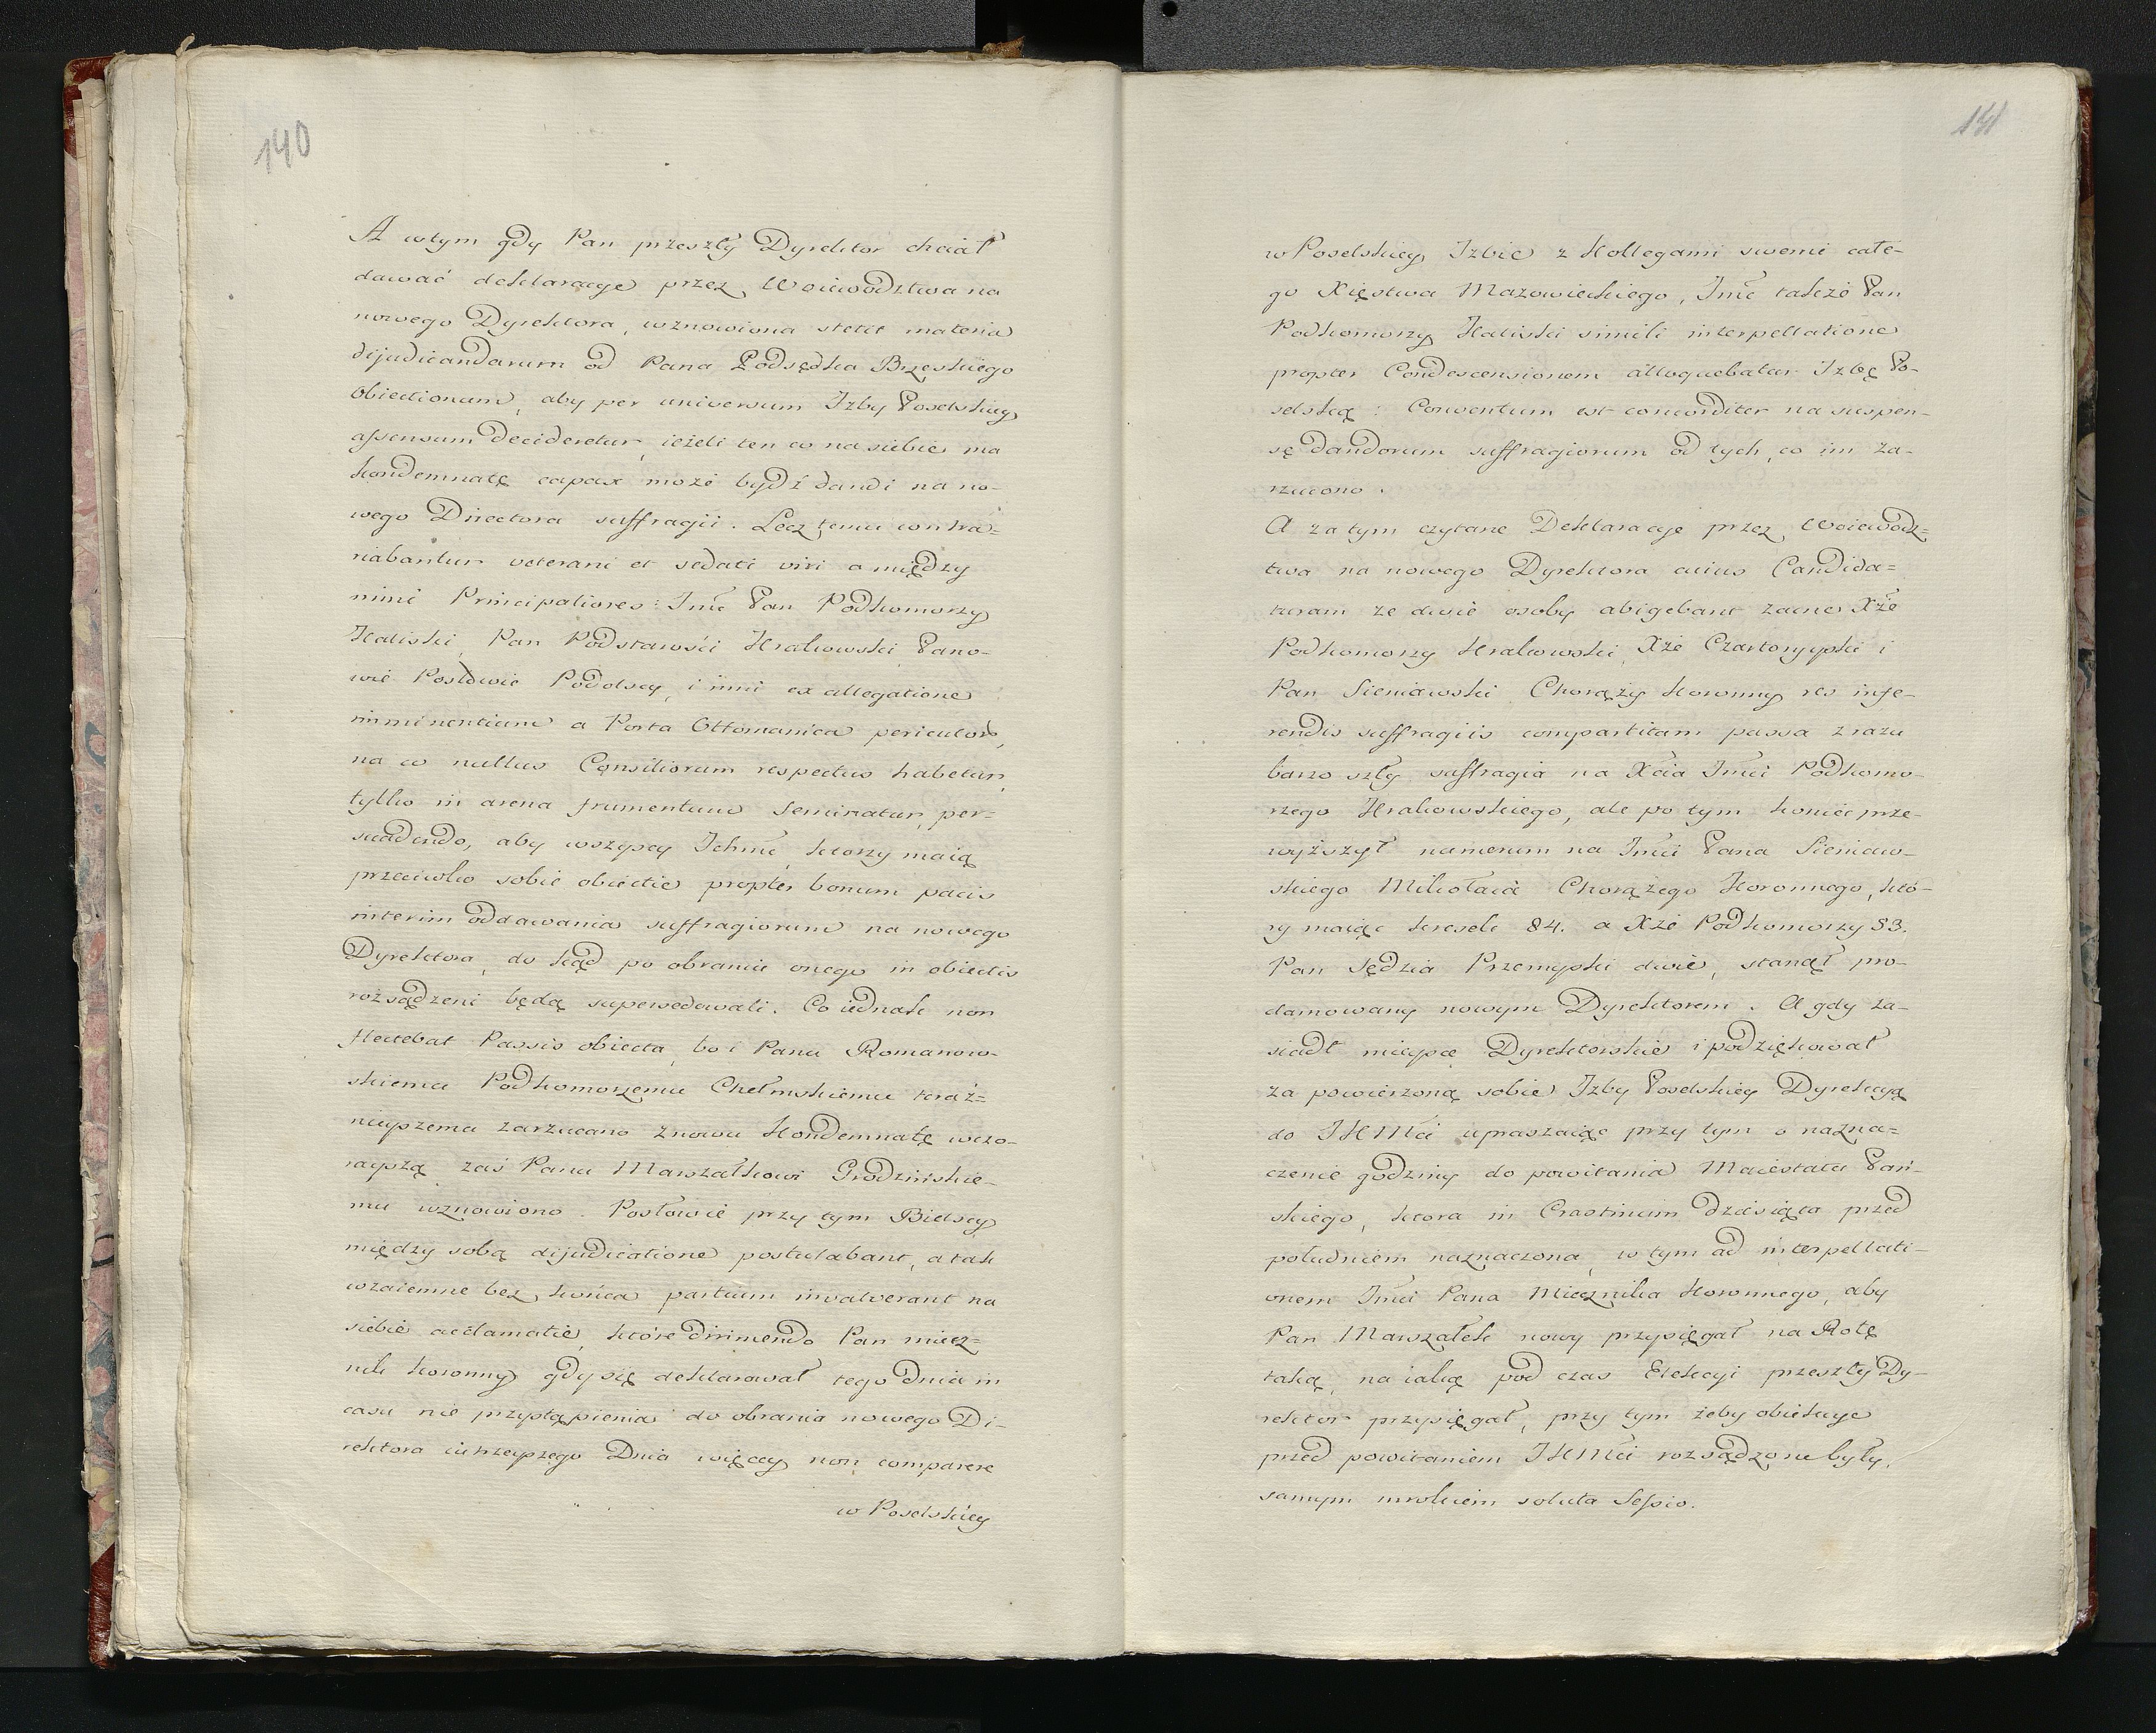 140
A wtym gdy Pan przeszły Dyrektor chciał
dawać deklaracye przez Woiewodztwa na
nowego Dyrektora, wznowiona stetit materia
dijudicandarum od Pana Podsędka Brzeskiego
Obiectionum, aby per universum Izby Poselskiey
assensum decideretur, ieżeli ten co na siebie ma
kondemnatę capax może bydź dandi na no-
wego Directora suffragii. Lecz temu contra=
riabantur veterani et sedati viri a między
nimi Principaliores: Jmć Pan Podkomorzy
Kaliski, Pan Podstarości Krakowski Pano-
wie Posłowie Podolscy, i inni ex allegatione
imminentium a Porta Ottomanica periculor,
na co nullus Consiliorum respectus habetur,
tylko in arena frumentum seminatur, per=
suadendo, aby wszyscy Ichmć, ktorzy maią
przeciwko sobie obiectie propter bonum pacis
interim oddawania suffragiorum na nowego
Dyrektora, do kąd po obraniu onego in obiectis
rozsądzeni będą supersedowali. Co iednak non
flectebat Passis obiecta, bo i Panu Romanow-
skiemu Podkomorzemu Chełmskiemu teraź=
nieyszemu zarzucano znowu Kondemnatę wczo-
rayszą zaś Panu Marszałkowi Grodzińskie-
mu wznowiono. Posłowie przy tym Bielscy
między sobą dijudicatione postulabant, a tak
wzaiemne bez końca partium invalverant na
siebie acclamatie, które dirimendo Pan miecz=
nik koronny gdy się deklarował tego Dnia in
casu nie przystąpienia do obrania nowego Di-
rektora iutrzeyszego Dnia więcey non comparere
w Poselskiey
141
w Poselskiey Izbie z Kollegami swemi całe-
go Xięstwa Mazowieckiego, Jmć także Pan
Podkomorzy Kaliski simili interpellatione
propter Condescensionem alloquebatur Izbę Po-
selską: Conventum est concorditer na suspen-
sę dandorum suffragiorum od tych, co im za-
rzucono.
A za tym czytane Deklaracye przez Woiewodz=
twa na nowego Dyrektora cuius Candida=
turam ze dwie osoby abigebant zacne Xże
Podkomorzy Krakowski, Xże Czartoryyski i
Pan Sieniawski Chorąży koronny res infe-
rendis suffragiis compartitam passa zrazu
barzo szły suffragia na Xcia Jmci Podkomo-
rzego Krakowskiego, ale po tym koniec prze-
wyższył numerum na Jmci Pana Sieniaw-
skiego Mikołaia Chorążego Koronnego, któ-
ry maiąc kresek 84. a Xże Podkomorzy 83.
Pan Sędzia Przemyski dwie, stanął pro-
clamowany nowym Dyrektorem. A gdy za-
siadł mieysce Dyrektorskie i podziękował
za powierzoną sobie Izby Poselskiey Dyrekcyą
do JKMci upraszaiąc przy tym o nazna=
czenie godziny do powitania Maiestatu Pań-
skiego, ktora in Crastinum dziesiąta przed
południem naznaczona, w tym ad interpellati-
onem Jmci Pana Miecznika Koronnego, aby
Pan Marszałek nowy przysięgał na Rotę
taką, na iaką pod czas Elekcyi przeszły Dy-
rektor przysięgał, przy tym żeby obiekcye
przed powitaniem JKMci rozsądzone były,
samym mrokiem soluta Sessio.